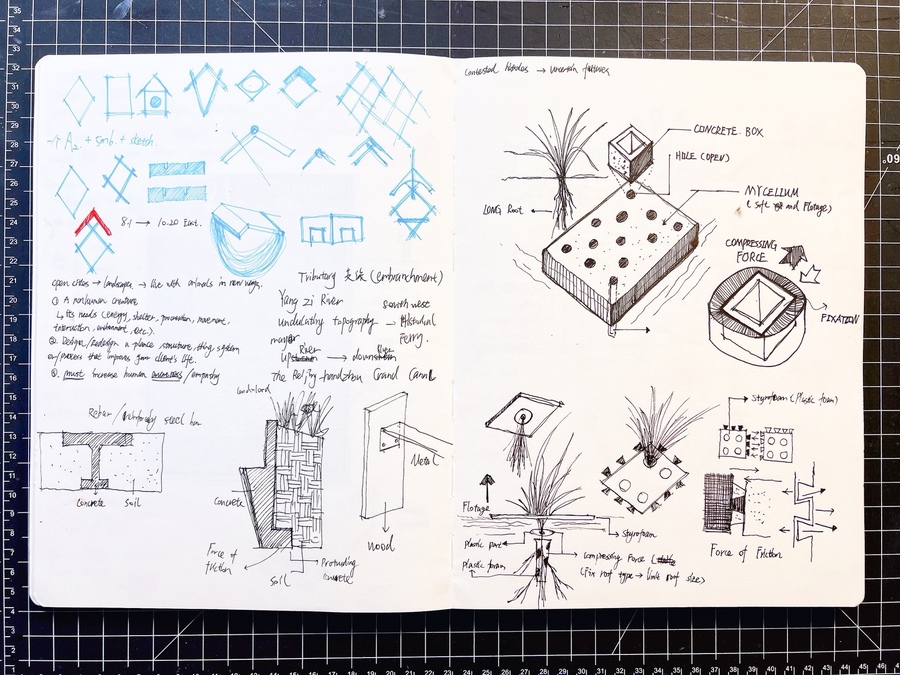 → A2 + 5mb. + sketch.
8-1 → 10.20 East.
open cities → landscape → live with animals in new ways.
① A nonhuman creature
↳ Its needs (energy, shelter, movement,
interaction, environment, etc.).
② Design/Redesign a place, structure, thing, system
or/process that improves your client's life.
③ must increase human awareness / empathy
Tributary 支流 (embranchment)
Yang zi River
south west
undulating topography → Historical
Ferry.
major
River
up → down
The Beijing-Hangzhou Grand Canal
Rebar / reinforcing steel bar
Concrete
Soil
Concrete
Force of
friction
Soil
Protruding
concrete
Metal
Wood
Contested Histories → uncertain futures
CONCRETE BOX
HOLE (OPEN)
MYCELIUM
(Soft and Flotage)
LONG Root
COMPRESSING
FORCE
FIXATION
Styrofoam (Plastic foam)
Flotage
Styrofoam
Plastic part
plastic foam
Compressing Force
(Fix roof type → size)
Force of Friction